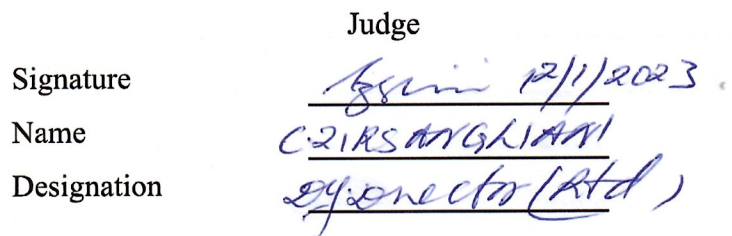 Judge
Signature 12/1/2023
Name C. ZIRSANGLIANI
Designation Dy. Director (Rtd)